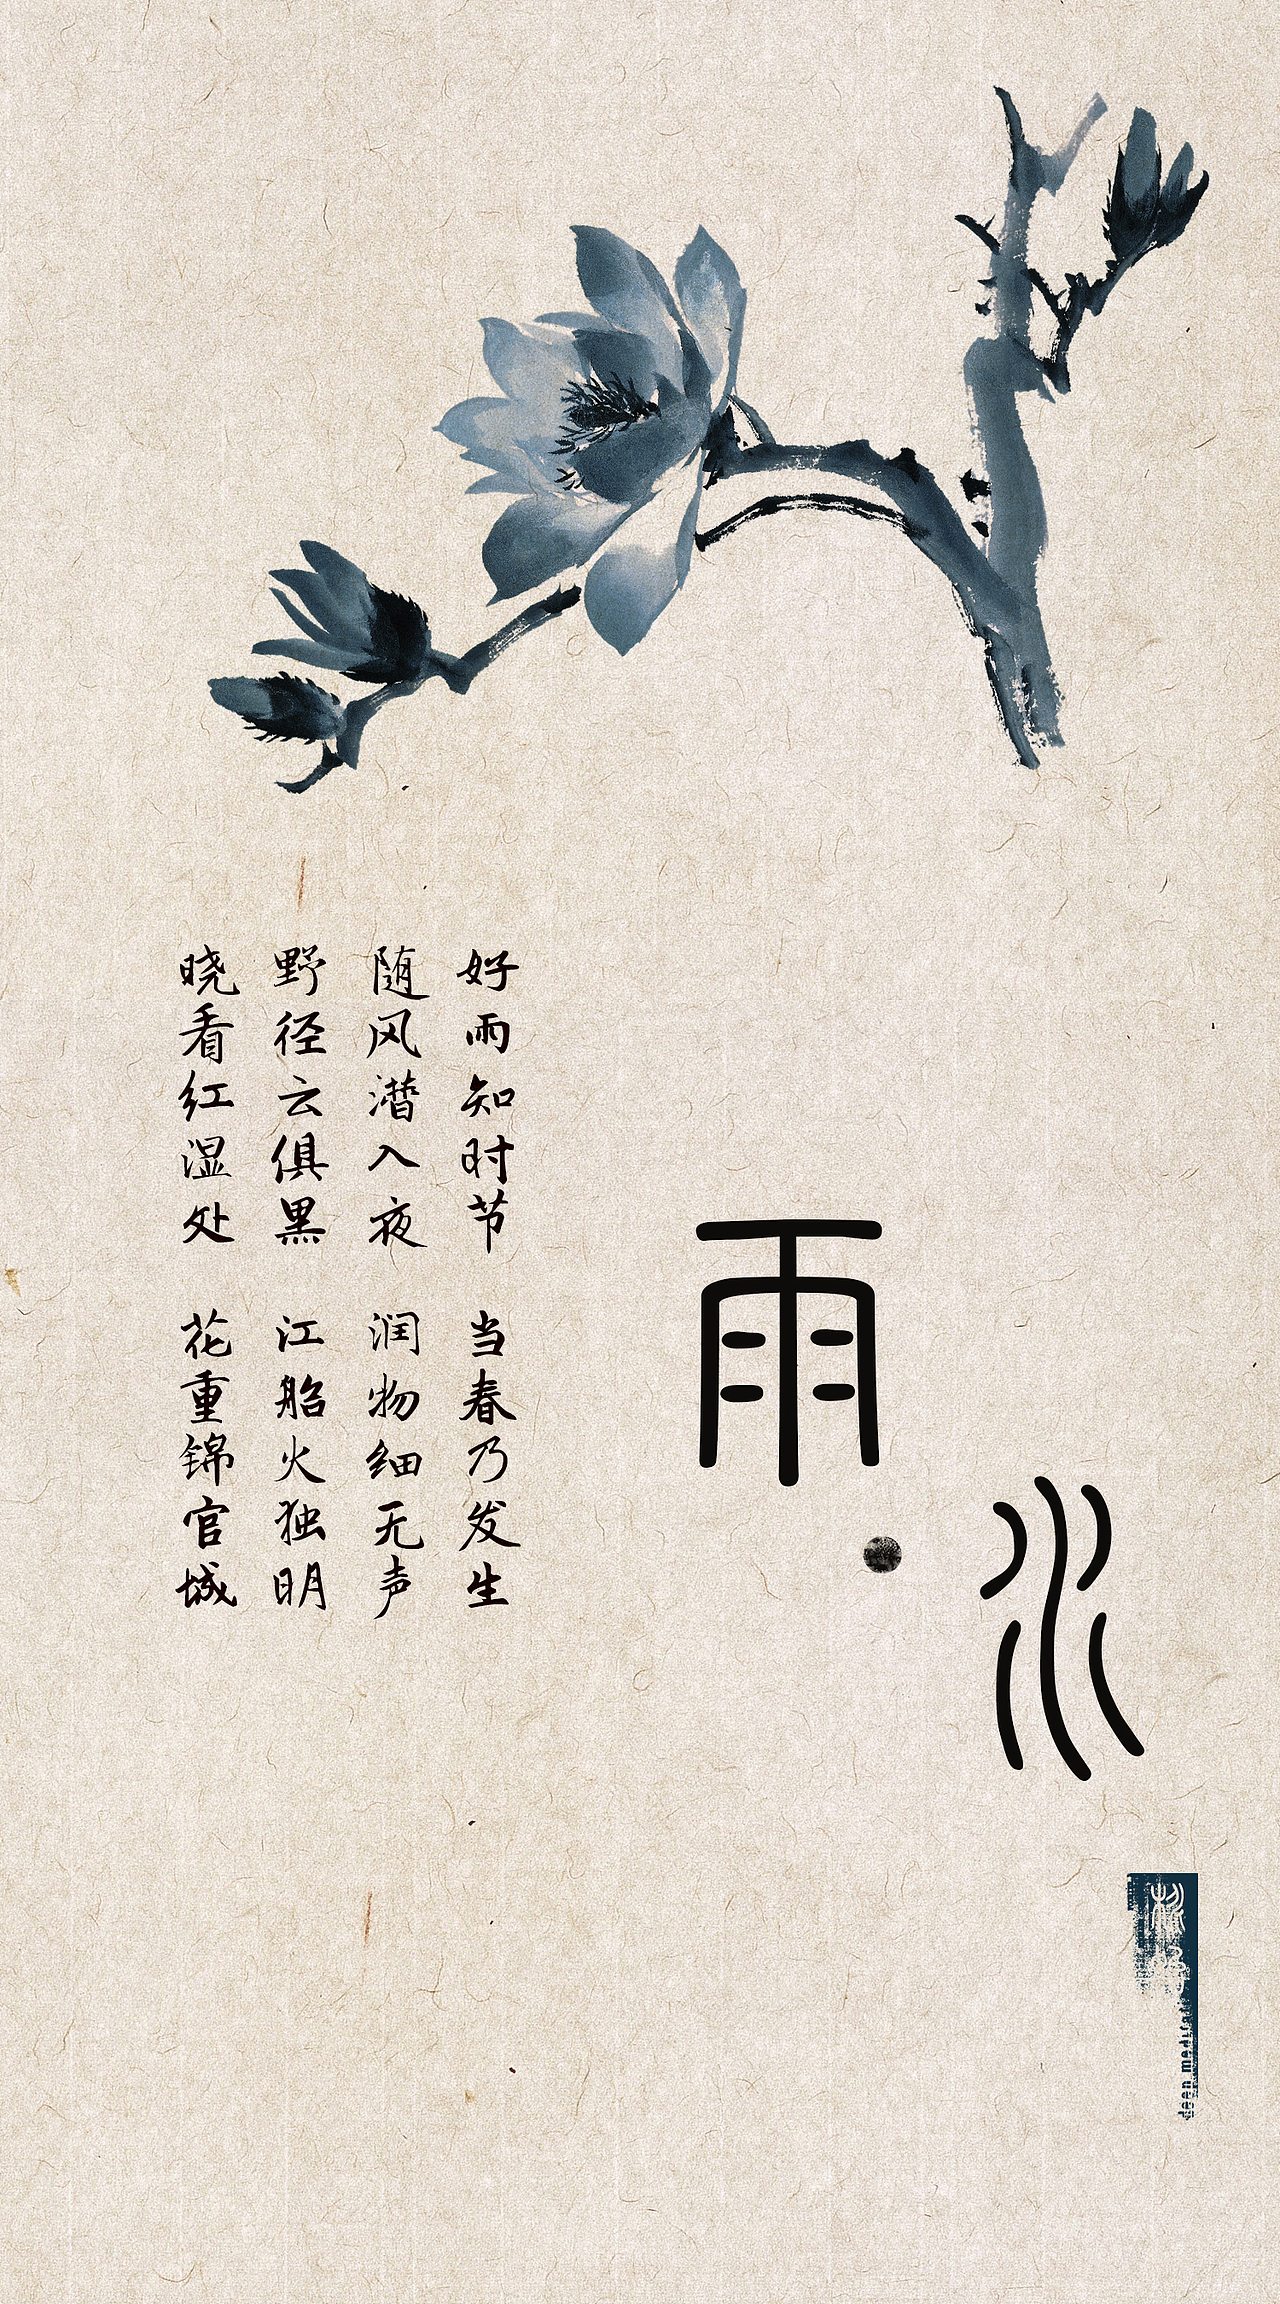 雨水
好雨知时节 当春乃发生
随风潜入夜 润物细无声
野径云俱黑 江船火独明
晓看红湿处 花重锦官城